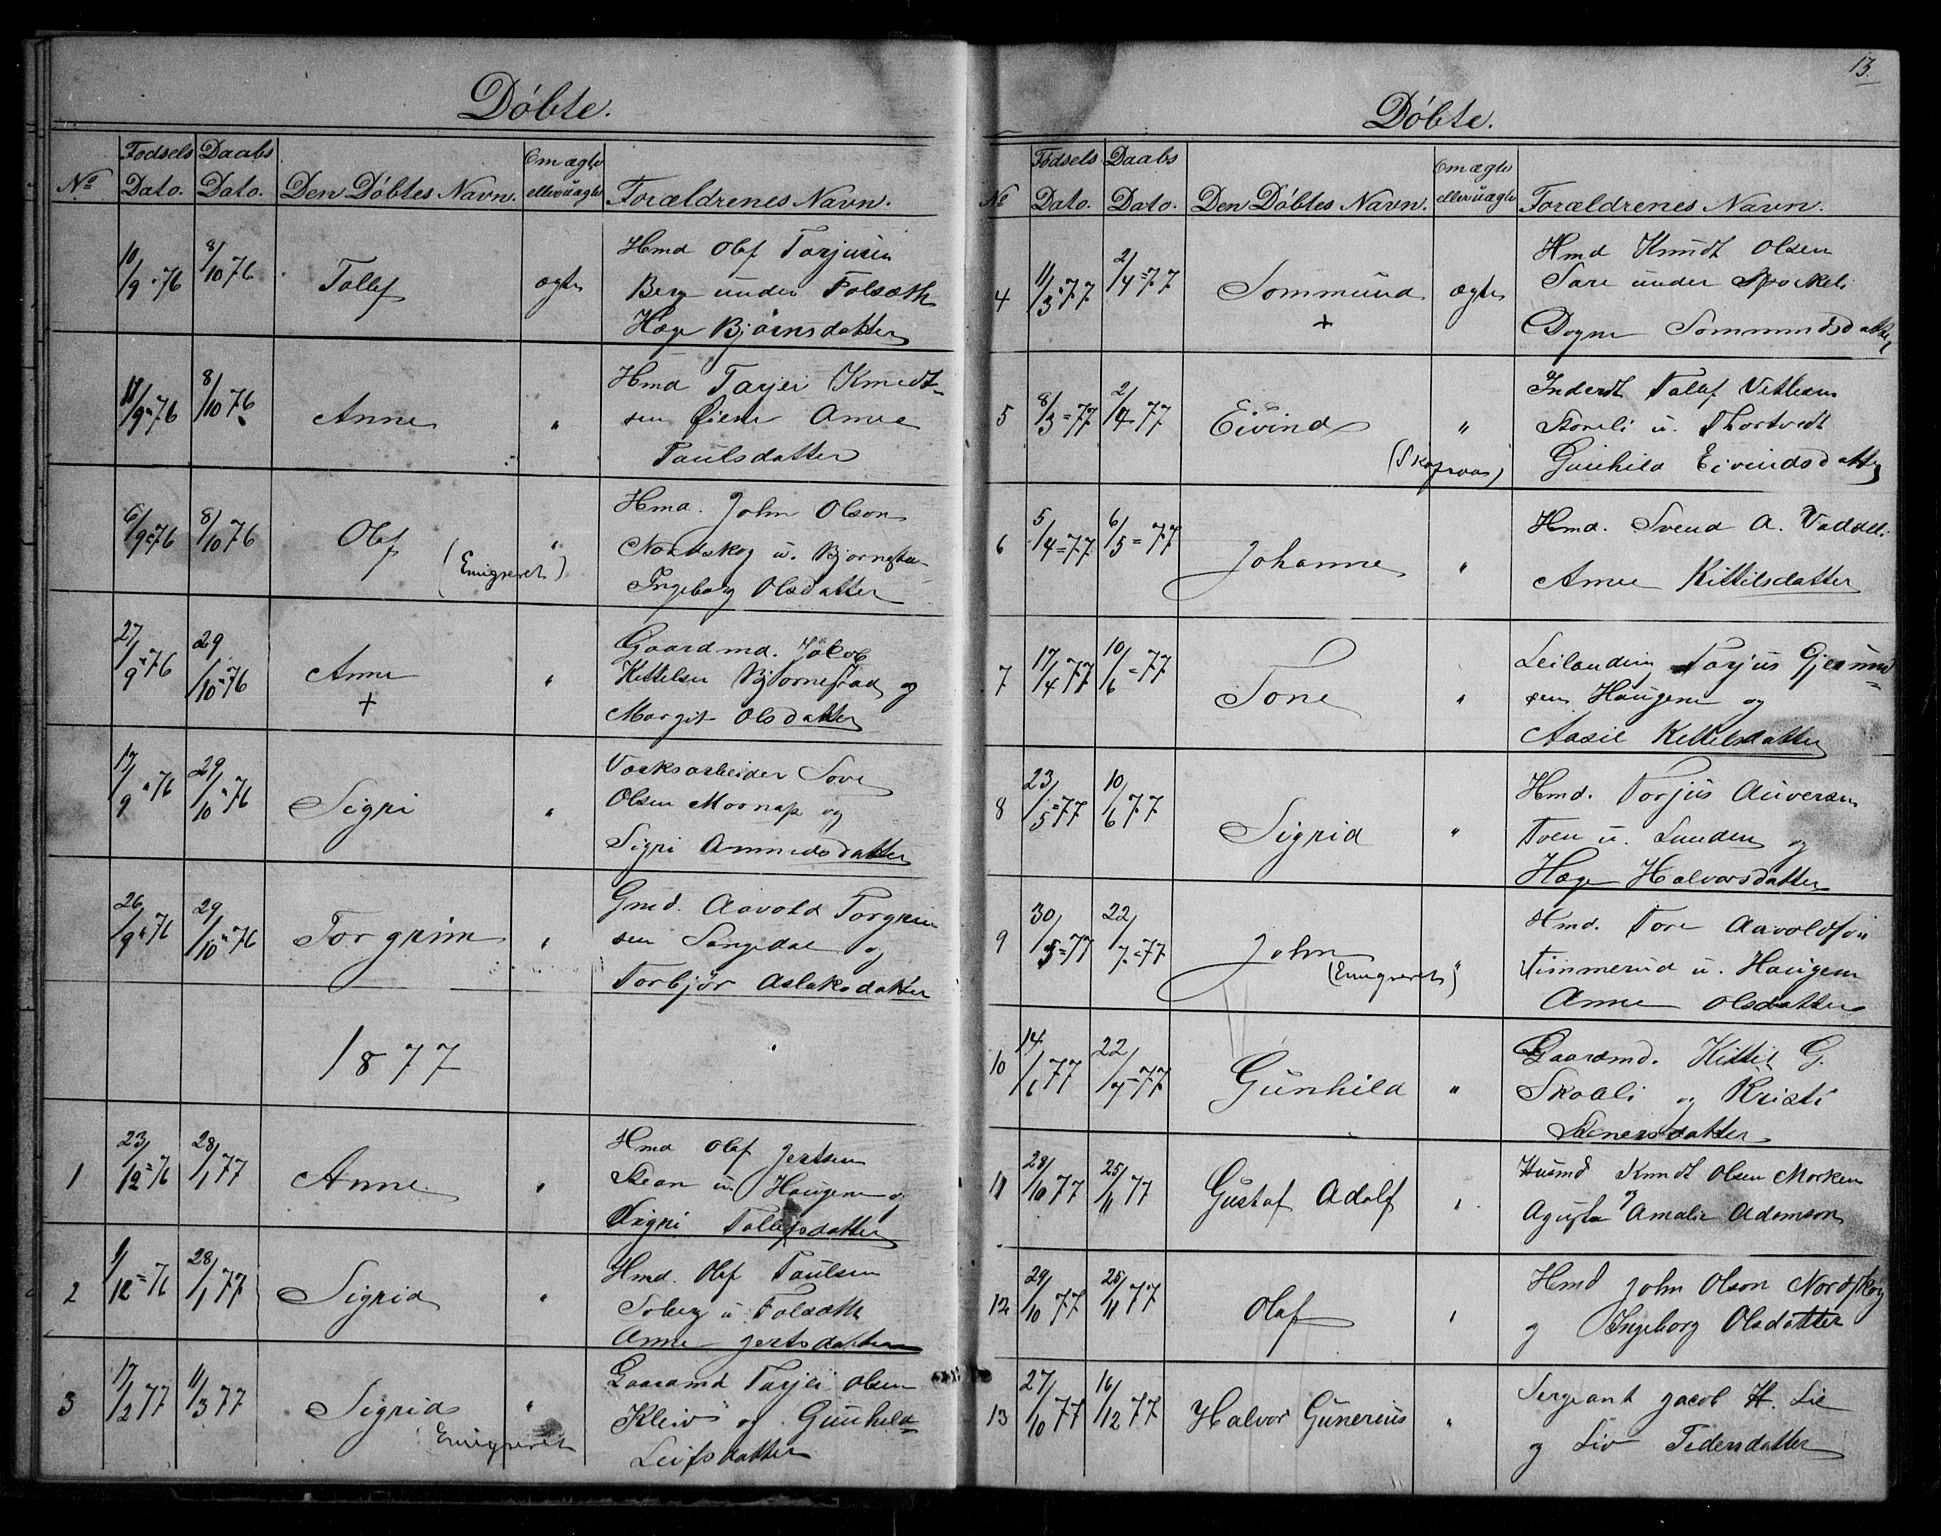 Döbte.
No
Födsels Dato.
Daabs Dato.
Den Döbtes Navn.
Om ægte eller uægte
Forældrenes Navn.
10/9 76
8/10 76
Tollef
ægte
Hmd Olaf Torjusen
Berg under Folsæth
Hæge Björnsdatter
11/9 76
8/10 76
Anne
"
Hmd Tarjei Knudt-
sen Anne
Paulsdatter
6/9 76
8/10 76
Olaf
(Emigreret)
"
Hmd. John Olson
Nordskog u.
Ingeborg Olsdatter
27/9 76
29/10 76
Anne
+
"
Gaardmd. Jakob
Kittelsen Bjornestad og
Margit Olsdatter
17/9 76
29/10 76
Sigri
"
Værksarbeider Tove
Olsen Moonap og
Sigri Amundsdatter
26/9 76
29/10 76
Torgrim
"
Gmd. Aavold Torgrim
sen Songedal og
Torbjör Aslaksdatter
1877
1
23/12 = 76
28/1 77
Anne
"
Hmd Olaf Jertsen
u. Haugene o.
Sigri Tollefsdatter
2
9/12 = 76
28/1 77
Sigrid
"
Hmd. Olaf Paulsen
Soberg u Folsæth
Anne Jertsdatter
3
17/2 77
11/3 77
Sigrid
Emigreret
"
Gaardmd Tarjei Olsen
Kleiv og Gunhild
Leifsdatter
13.
Döbte.
No
Födsels Dato.
Daabs Dato.
Den Döbtes Navn.
Om ægte eller uægte
Forældrenes Navn.
4
11/3 77
2/4 = 77
Sommund
+
ægte
Hmd Knudt Olsen
under
Dogne Sommundsdatter
5
8/3 = 77
2/4 77
Eivind
"
Inderst Tollef Vetlesen
Storeli u. Thortvedt
Gunhild Eivindsdatter
6
5/4 = 77
6/5 = 77
Johanne
"
Hmd. Svend A. Vaddeli
Anne Kittilsdatter
7
17/4 77
10/6 = 77
Tone
"
Leilanding Torjus Gjermund
sen Haugene og
Aasil Kittelsdatter
8
23/5 = 77
10/6 77
Sigrid
"
Hmd. Torjus Auversen
Tven u. Lunden og
Hæge Halvorsdatter
9
30/5 = 77
22/7 = 77
John
(Emigreret)
"
Hmd. Tore Aavoldson
Timmerud u. Haugene
Anne Olsdatter
10
14/6 77
22/7 = 77
Gunhild
"
Gaardmd. Kittil G.
Skoali og Kristi
Stenersdatter
11
28/10 77
25/11 77
Gustaf Adolf
"
Husmd Knudt Olsen Morken
og
Agusta Amalie Adamson
12
29/10 77
25/11 77
Olaf
"
Hmd John Olson Nordskog
og Ingeborg Olsdatter
13
27/10 77
16/12 77
Halvor Gunerius
"
Sergeant Jacob H. Lie
og Liv Pedersdatter